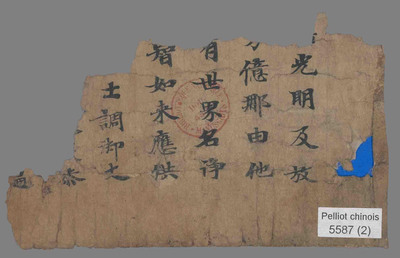 光明及放
億那由他
有世界名淨
智如來應供
士調御丈
Pelliot chinois
5587 (2)